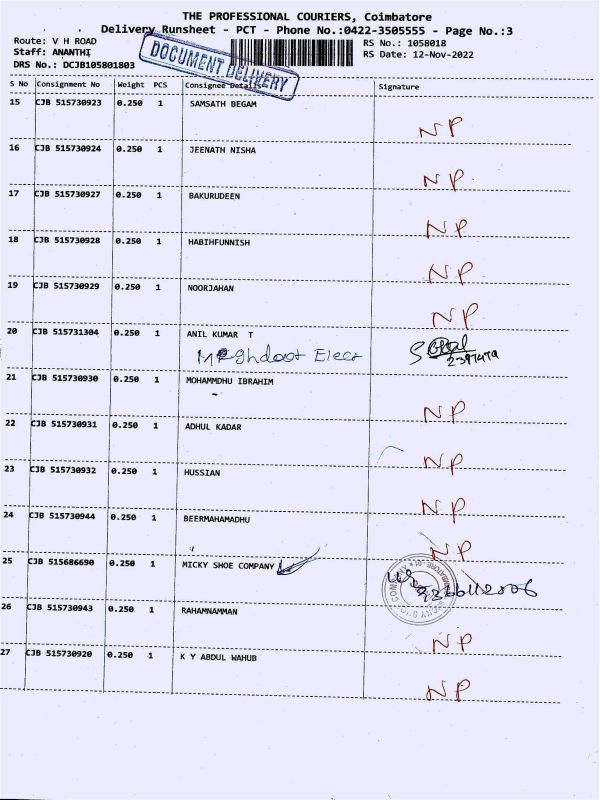 THE PROFESSIONAL COURIERS, Coimbatore
Delivery Runsheet - PCT - Phone No.:0422-3505555 - Page No.:3
Route: V H ROAD RS No.: 1058018
Staff: ANANTHI RS Date: 12-Nov-2022
DRS No.: DCJB105801803
DOCUMENT DELIVERY
S No Consignment No Weight PCS Consignee Details Signature
15 CJB 515730923 0.250 1 SAMSATH BEGAM
NP
16 CJB 515730924 0.250 1 JEENATH NISHA
NP
17 CJB 515730927 0.250 1 BAKURUDEEN
NP
18 CJB 515730928 0.250 1 HABIHFUNNISH
NP
19 CJB 515730929 0.250 1 NOORJAHAN
NP
20 CJB 515731304 0.250 1 ANIL KUMAR T
Meghdoot Elect
21 CJB 515730930 0.250 1 MOHAMMDHU IBRAHIM
NP
22 CJB 515730931 0.250 1 ADHUL KADAR
NP
23 CJB 515730932 0.250 1 HUSSIAN
NP
24 CJB 515730944 0.250 1 BEERMAHAMADHU
NP
25 CJB 515686690 0.250 1 MICKY SHOE COMPANY
26 CJB 515730943 0.250 1 RAHAMNAMMAN
NP
27 CJB 515730920 0.250 1 K Y ABDUL WAHUB
NP